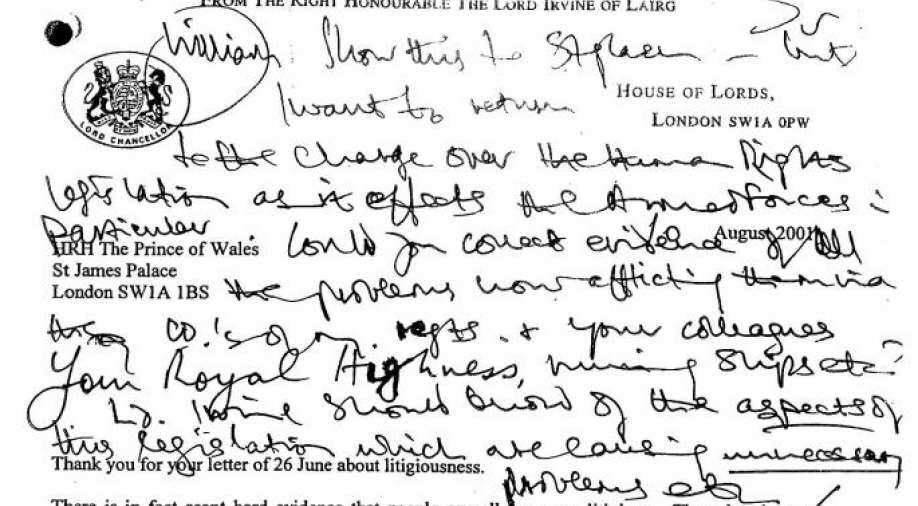 FROM THE RIGHT HONOURABLE THE LORD IRVINE OF LAIRG
William Show this to Stephen – but
I want to return
HOUSE OF LORDS,
LONDON SW1A 0PW
LORD CHANCELLOR
to the charge over the Human Rights
legislation as it affects the Armed Forces in
particular. Could you collect evidence of all
August 2001
HRH The Prince of Wales
St James Palace
London SW1A 1BS
the problems now afflicting them via
the CO.'s of my regts. & your colleagues
running ships etc?
Your Royal Highness,
Ld. Irvine should know of the aspects of
this legislation which are causing unnecessary
Thank you for your letter of 26 June about litigiousness.
problems etc